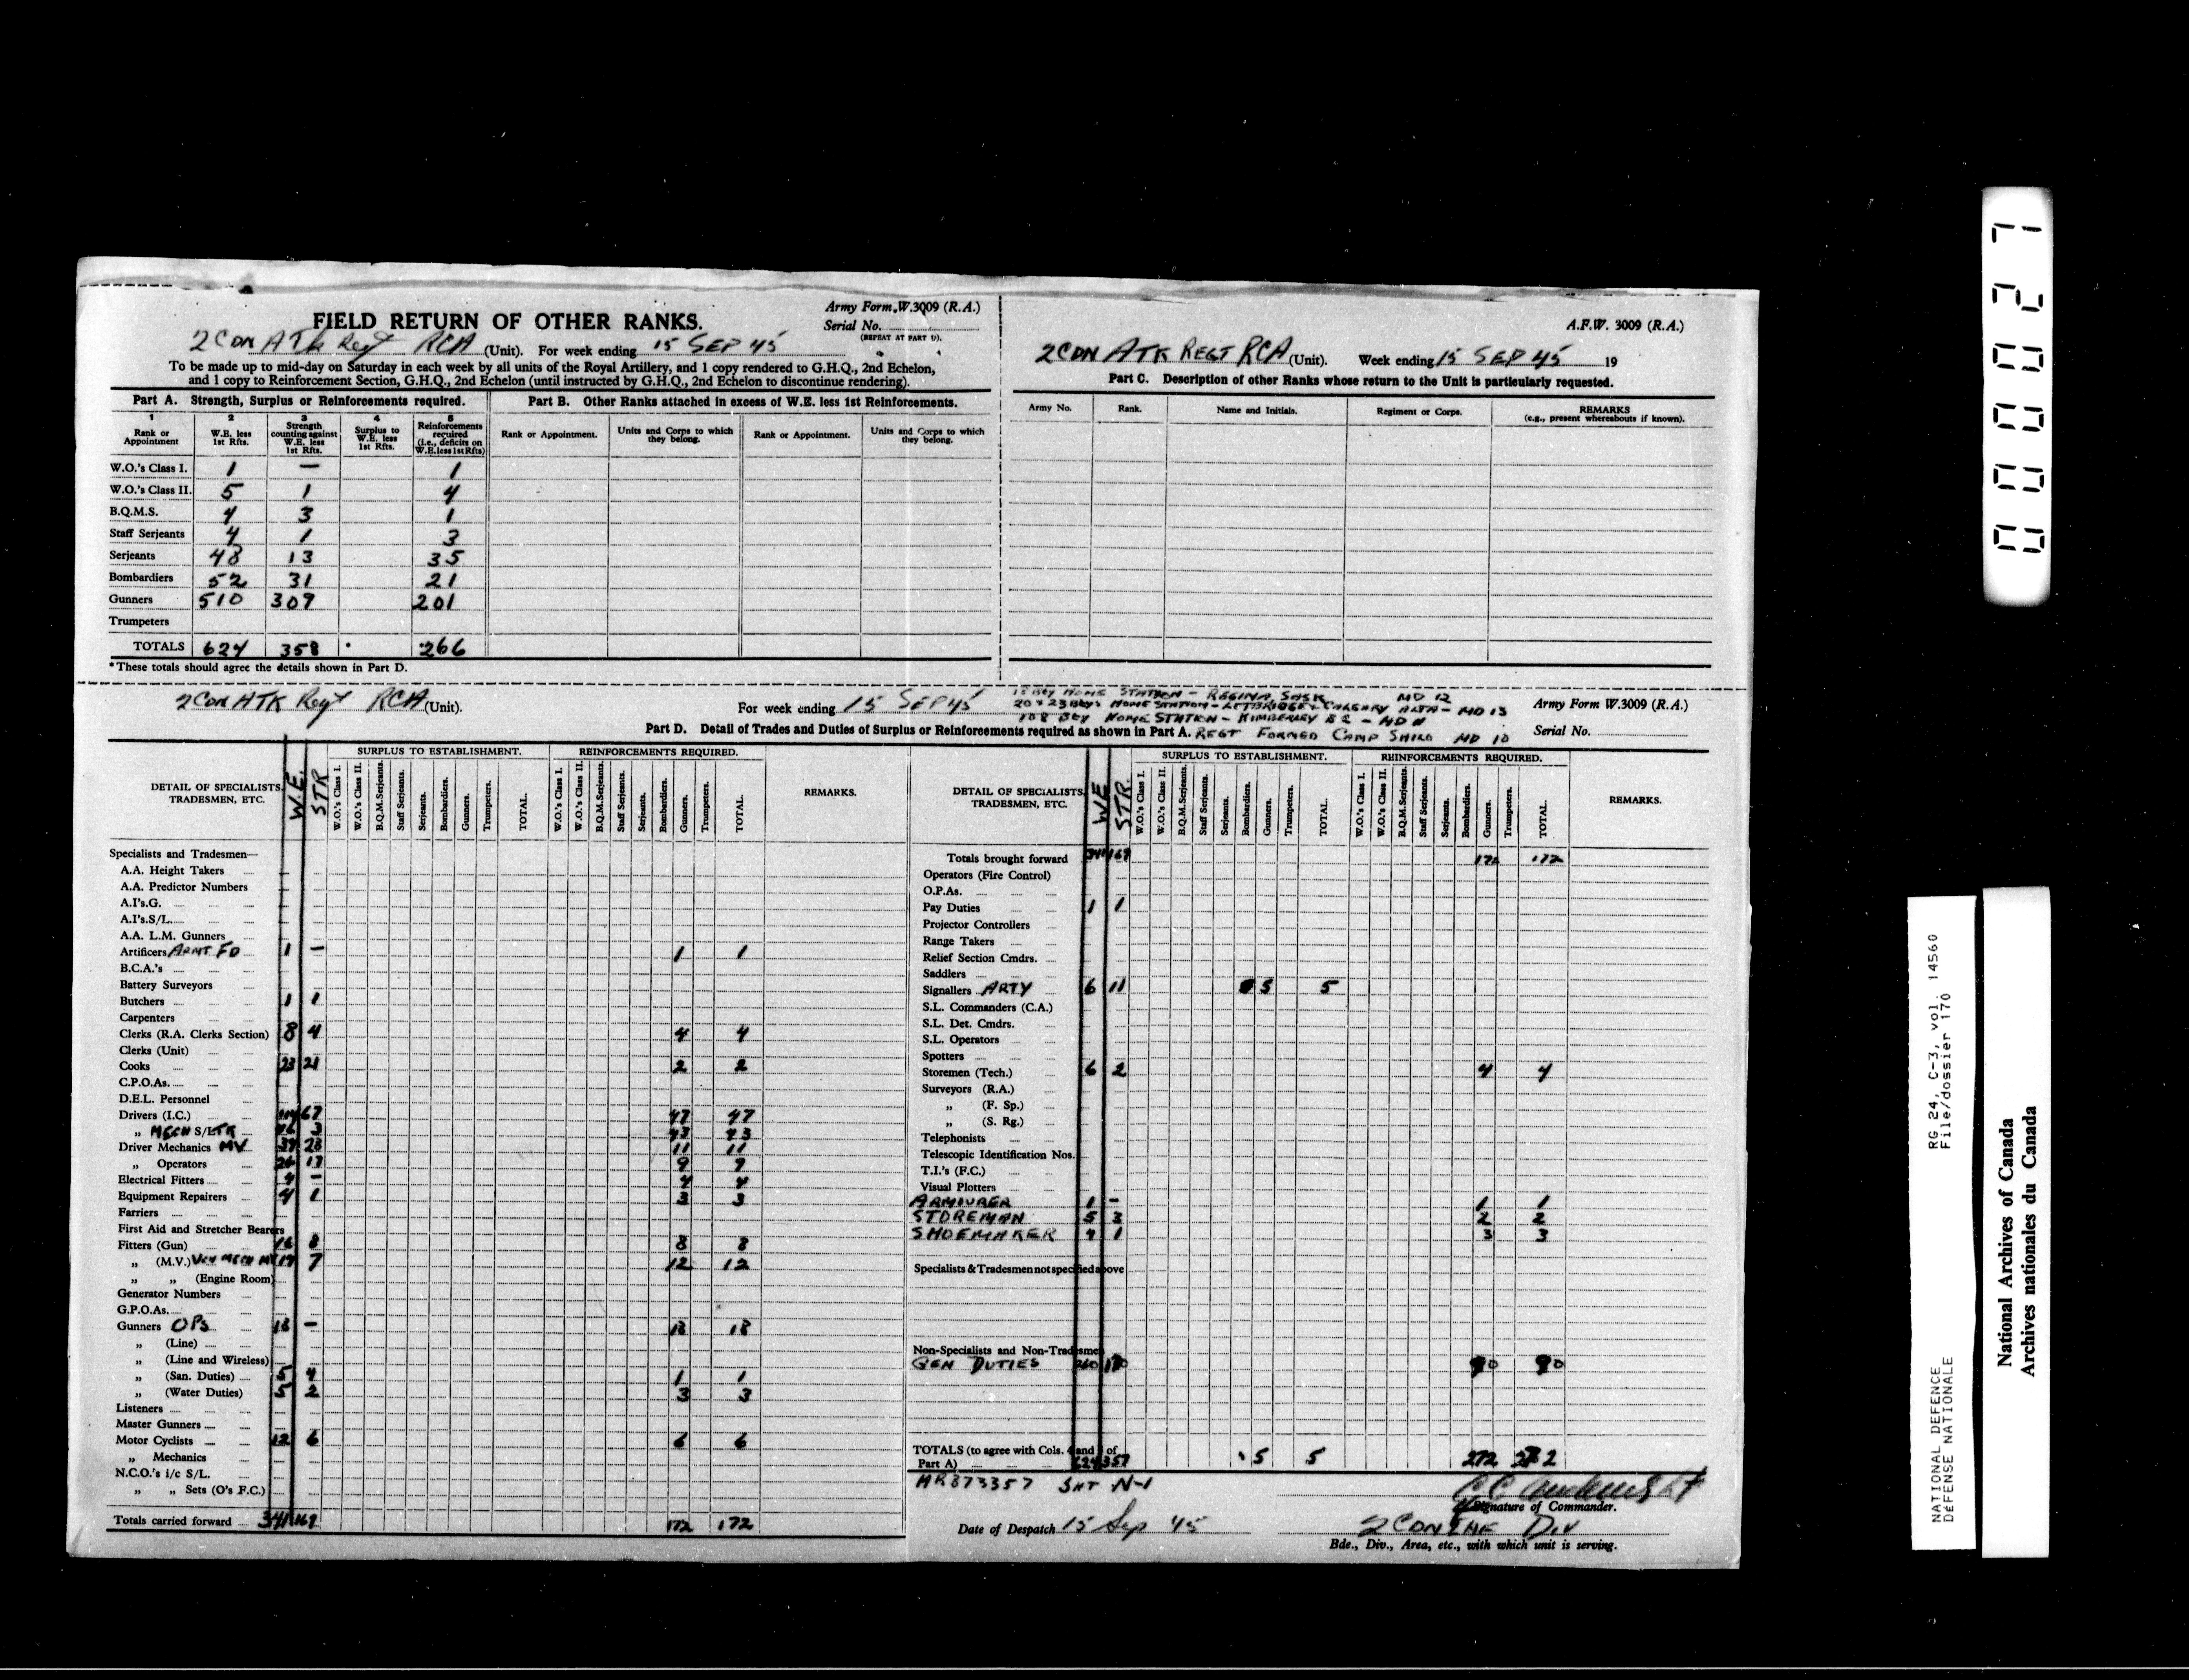 FIELD RETURN OF OTHER RANKS.
Army Form W.3009 (R.A.)
Serial No.
(REPEAT AT PART D).
2 CDN ATk Regt RCA (Unit). For week ending 15 SEP 45
To be made up to mid-day on Saturday in each week by all units of the Royal Artillery, and 1 copy rendered to G.H.Q., 2nd Echelon,
and 1 copy to Reinforcement Section, G.H.Q., 2nd Echelon (until instructed by G.H.Q., 2nd Echelon to discontinue rendering).
Part A. Strength, Surplus or Reinforcements required.
1 2 3 4 5
Rank or Appointment
W.E. less 1st Rfts.
Strength counting against W.E. less 1st Rfts.
Surplus to W.E. less 1st Rfts.
Reinforcements required (i.e., deficits on W.E. less 1st Rfts)
W.O.'s Class I. 1 — 1
W.O.'s Class II. 5 1 4
B.Q.M.S. 4 3 1
Staff Serjeants 4 1 3
Serjeants 48 13 35
Bombardiers 52 31 21
Gunners 510 309 201
Trumpeters
TOTALS 624 358 * *266
*These totals should agree the details shown in Part D.
Part B. Other Ranks attached in excess of W.E. less 1st Reinforcements.
Rank or Appointment. Units and Corps to which they belong. Rank or Appointment. Units and Corps to which they belong.
A.F.W. 3009 (R.A.)
2 CDN ATK REGT RCA (Unit). Week ending 15 SEP 45 19
Part C. Description of other Ranks whose return to the Unit is particularly requested.
Army No. Rank. Name and Initials. Regiment or Corps. REMARKS
(e.g., present whereabouts if known).
2 CDN ATK Regt RCA (Unit). For week ending 15 SEP 45
BTY HOME STATION - REGINA SASK MD 12
20 & 23 Btys HOME STATION - LETBRIDGE & CALGARY ALTA - MD 13
108 BTY HOME STATION - KIMBERLEY BC - MD 11
REGT FORMED CAMP SHILO MD 10
Army Form W.3009 (R.A.)
Serial No.
Part D. Detail of Trades and Duties of Surplus or Reinforcements required as shown in Part A.
DETAIL OF SPECIALISTS, TRADESMEN, ETC.
W.E. STR
SURPLUS TO ESTABLISHMENT.
W.O.'s Class I. W.O.'s Class II. B.Q.M.Serjeants. Staff Serjeants. Serjeants. Bombardiers. Gunners. Trumpeters. TOTAL.
REINFORCEMENTS REQUIRED.
W.O.'s Class I. W.O.'s Class II. B.Q.M.Serjeants. Staff Serjeants. Serjeants. Bombardiers. Gunners. Trumpeters. TOTAL.
REMARKS.
Specialists and Tradesmen—
A.A. Height Takers
A.A. Predictor Numbers
A.I's.G.
A.I's.S/L.
A.A. L.M. Gunners
Artificers ARMT FD 1 — 1 1
B.C.A.'s
Battery Surveyors
Butchers 1 1
Carpenters
Clerks (R.A. Clerks Section) 8 4 4 4
Clerks (Unit)
Cooks 23 21 2 2
C.P.O.As.
D.E.L. Personnel
Drivers (I.C.) 67 47 47
„ MECH S/LTR 3 43 43
Driver Mechanics MV 23 11 11
„ Operators 26 17 9 9
Electrical Fitters 4 — 4 4
Equipment Repairers 4 1 3 3
Farriers
First Aid and Stretcher Bearers
Fitters (Gun) 16 8 8 8
„ (M.V.) VEH MECH MV 19 7 12 12
„ „ (Engine Room)
Generator Numbers
G.P.O.As.
Gunners OPs 18 — 18 18
„ (Line)
„ (Line and Wireless)
„ (San. Duties) 5 4 1 1
„ (Water Duties) 5 2 3 3
Listeners
Master Gunners
Motor Cyclists 12 6 6 6
„ Mechanics
N.C.O.'s i/c S/L.
„ „ Sets (O's F.C.)
Totals carried forward 341 169 172 172
DETAIL OF SPECIALISTS, TRADESMEN, ETC.
WE STR.
SURPLUS TO ESTABLISHMENT.
W.O.'s Class I. W.O.'s Class II. B.Q.M.Serjeants. Staff Serjeants. Serjeants. Bombardiers. Gunners. Trumpeters. TOTAL.
REINFORCEMENTS REQUIRED.
W.O.'s Class I. W.O.'s Class II. B.Q.M.Serjeants. Staff Serjeants. Serjeants. Bombardiers. Gunners. Trumpeters. TOTAL.
REMARKS.
Totals brought forward 341 169 172 172
Operators (Fire Control)
O.P.As.
Pay Duties 1 1
Projector Controllers
Range Takers
Relief Section Cmdrs.
Saddlers
Signallers ARTY 6 11 5 5
S.L. Commanders (C.A.)
S.L. Det. Cmdrs.
S.L. Operators
Spotters
Storemen (Tech.) 6 2 4 4
Surveyors (R.A.)
„ (F. Sp.)
„ (S. Rg.)
Telephonists
Telescopic Identification Nos.
T.I.'s (F.C.)
Visual Plotters
ARMOURER 1 — 1 1
STOREMAN 5 3 2 2
SHOEMAKER 4 1 3 3
Specialists & Tradesmen not specified above
Non-Specialists and Non-Tradesmen
GEN DUTIES 260 170 90 90
TOTALS (to agree with Cols. 4 and 5 of
Part A) 624 357 5 5 272 272
Signature of Commander.
Date of Despatch 15 Sep 45
2 CDN INF DIV
Bde., Div., Area, etc., with which unit is serving.
000027
NATIONAL DEFENCE RG 24, C-3, vol. 14560
DÉFENSE NATIONALE File/dossier 170
National Archives of Canada
Archives nationales du Canada